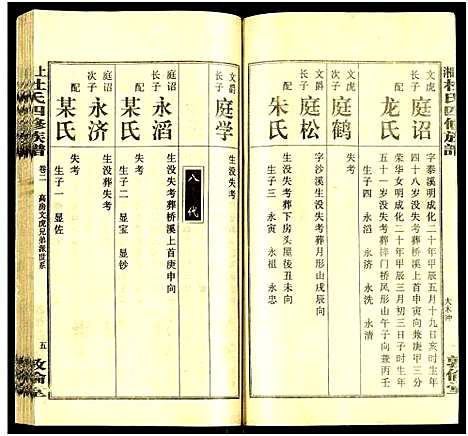 湘杜氏四修族譜
大木冲
敦倫堂
庭诏
字泰溪明成化二十年甲辰五月十九日亥时生年
四十八岁没失考葬桥溪上首庚申向兼庚甲三分
配
龙氏
荣华女明成化二十年甲辰三月初三日子时生年
五十一岁没失考葬梓门桥风形山戌山兼丙壬
生子四 永滔 永济 永洗 永清
文虎
次子
庭鹤
失考
文爵
长子
庭松
字沙溪生没失考葬月形山戌辰向
配
朱氏
生没失考葬下房头屋后丑未向
生子三 永寅 永祖 永忠
文爵
子
庭学
生没失考
八代
庭诏
长子
永滔
生没失考葬桥溪上首庚申向
配
某氏
失考
生子二 显宝 显钞
庭诏
次子
永济
生没失考
配
某氏
失考
生子一 显佐
上杜氏四修族譜
卷二 高房文虎兄弟派世系
五
敦倫堂